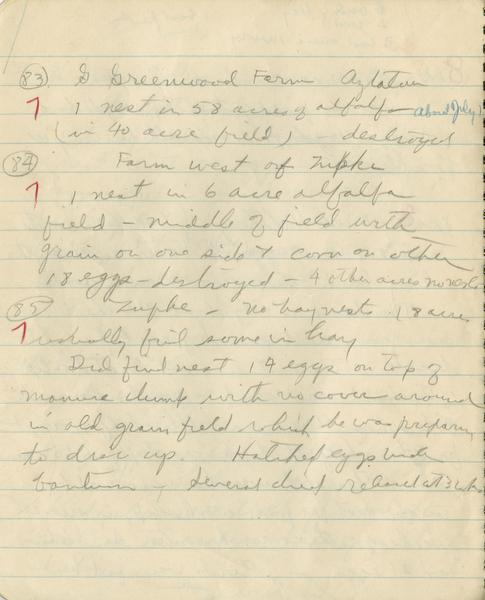 (83) G Greenwood Farm Aztalan
7 1 nest in 58 acres of alfalfa about July 1
(in 40 acre field) - destroyed
(84) Farm west of Zupke
7 1 nest in 6 acre alfalfa
field - middle of field with
grain on one side & corn on other
18 eggs - destroyed - 4 other acres no nests
(85) Zupke - no hay nests 18 acres
7 usually find some in hay
Did find nest 14 eggs on top of
manure dump with no cover around
in old grain field which he was preparing
to disc up. Hatched eggs under
bantam - several died released at 3 wks